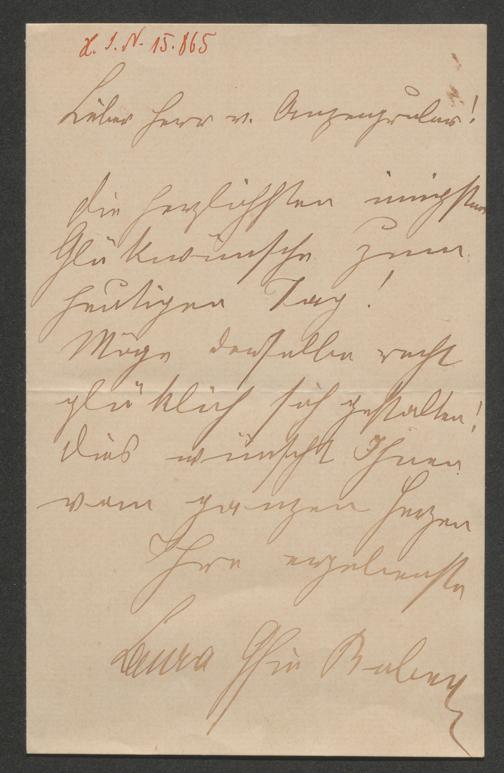 H. I. N. 15.865
Lieber Herr v. Anzengruber!
die herzlichsten innigsten
Glükwünsche zum
heutigen Tag!
Möge derselbe recht
glüklich sich gestalten!
dies wünscht Ihnen
vom ganzen Herzen
Ihre ergebenste
Laura